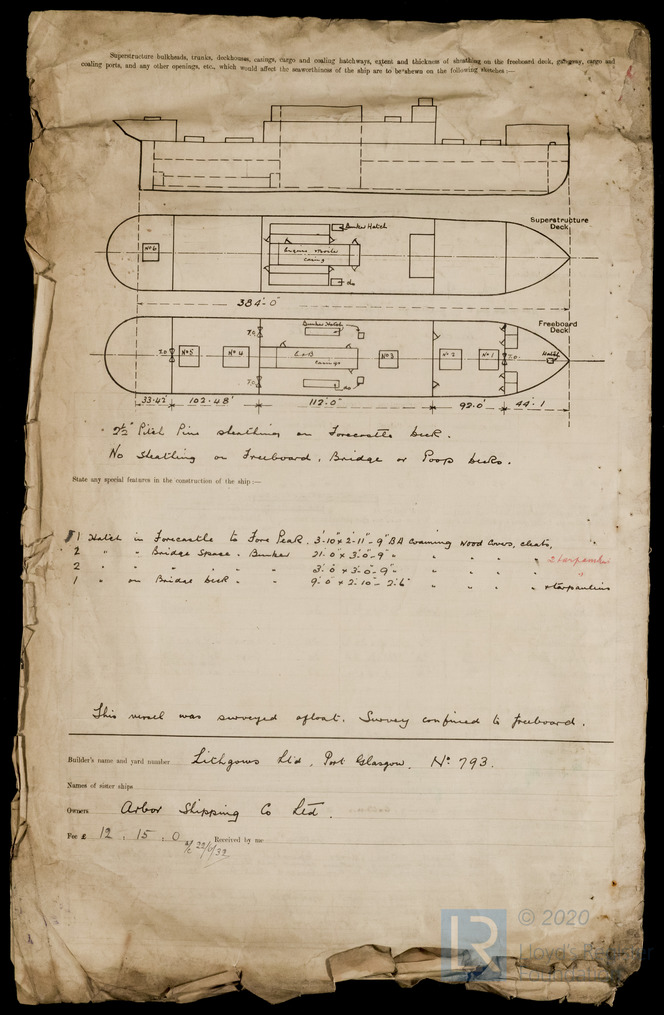 Superstructure bulkheads, trunks, deckhouses, casings, cargo and coaling hatchways, extent and thickness of sheathing on the freeboard deck, gangway, cargo and
coaling ports, and any other openings, etc., which would affect the seaworthiness of the ship are to be shewn on the following sketches:—
Superstructure
Deck
Bunker Hatch
No 6
Engine & Boiler
Casing
do
384'-0"
Freeboard
Deck
Bunker Hatch
T.O.
T.O.
No 5
No 4
E & B
Casings
No 3
No 2
No 1
T.O.
Hatch
T.O.
do
33.42'
102.48'
112.0'
92.0'
44.1
2½" Pitch Pine sheathing on Forecastle Deck.
No Sheathing on Freeboard, Bridge or Poop Decks.
State any special features in the construction of the ship:—
1 Hatch in Forecastle to Fore Peak. 3'-10" x 2'-11" - 9" BA Coaming Wood Covers, cleats,
2 " " Bridge Space. Bunker 21'.0" x 3'.0" - 9" " " " " 2 tarpaulins
2 " " " " " 3'.0" x 3'.0" - 9" " " " " "
1 " on Bridge Deck " " 9'.0" x 2'.10" - 2'.6" " " " " & tarpaulins
This vessel was surveyed afloat. Survey confined to freeboard.
Builder's name and yard number Lithgows Ltd, Port Glasgow, No 793.
Names of sister ships
Owners Arbor Shipping Co Ltd.
Fee £ 12 : 15 : 0 Received by me
22/6/32
LR
© 2020
Lloyd's Register
Foundation